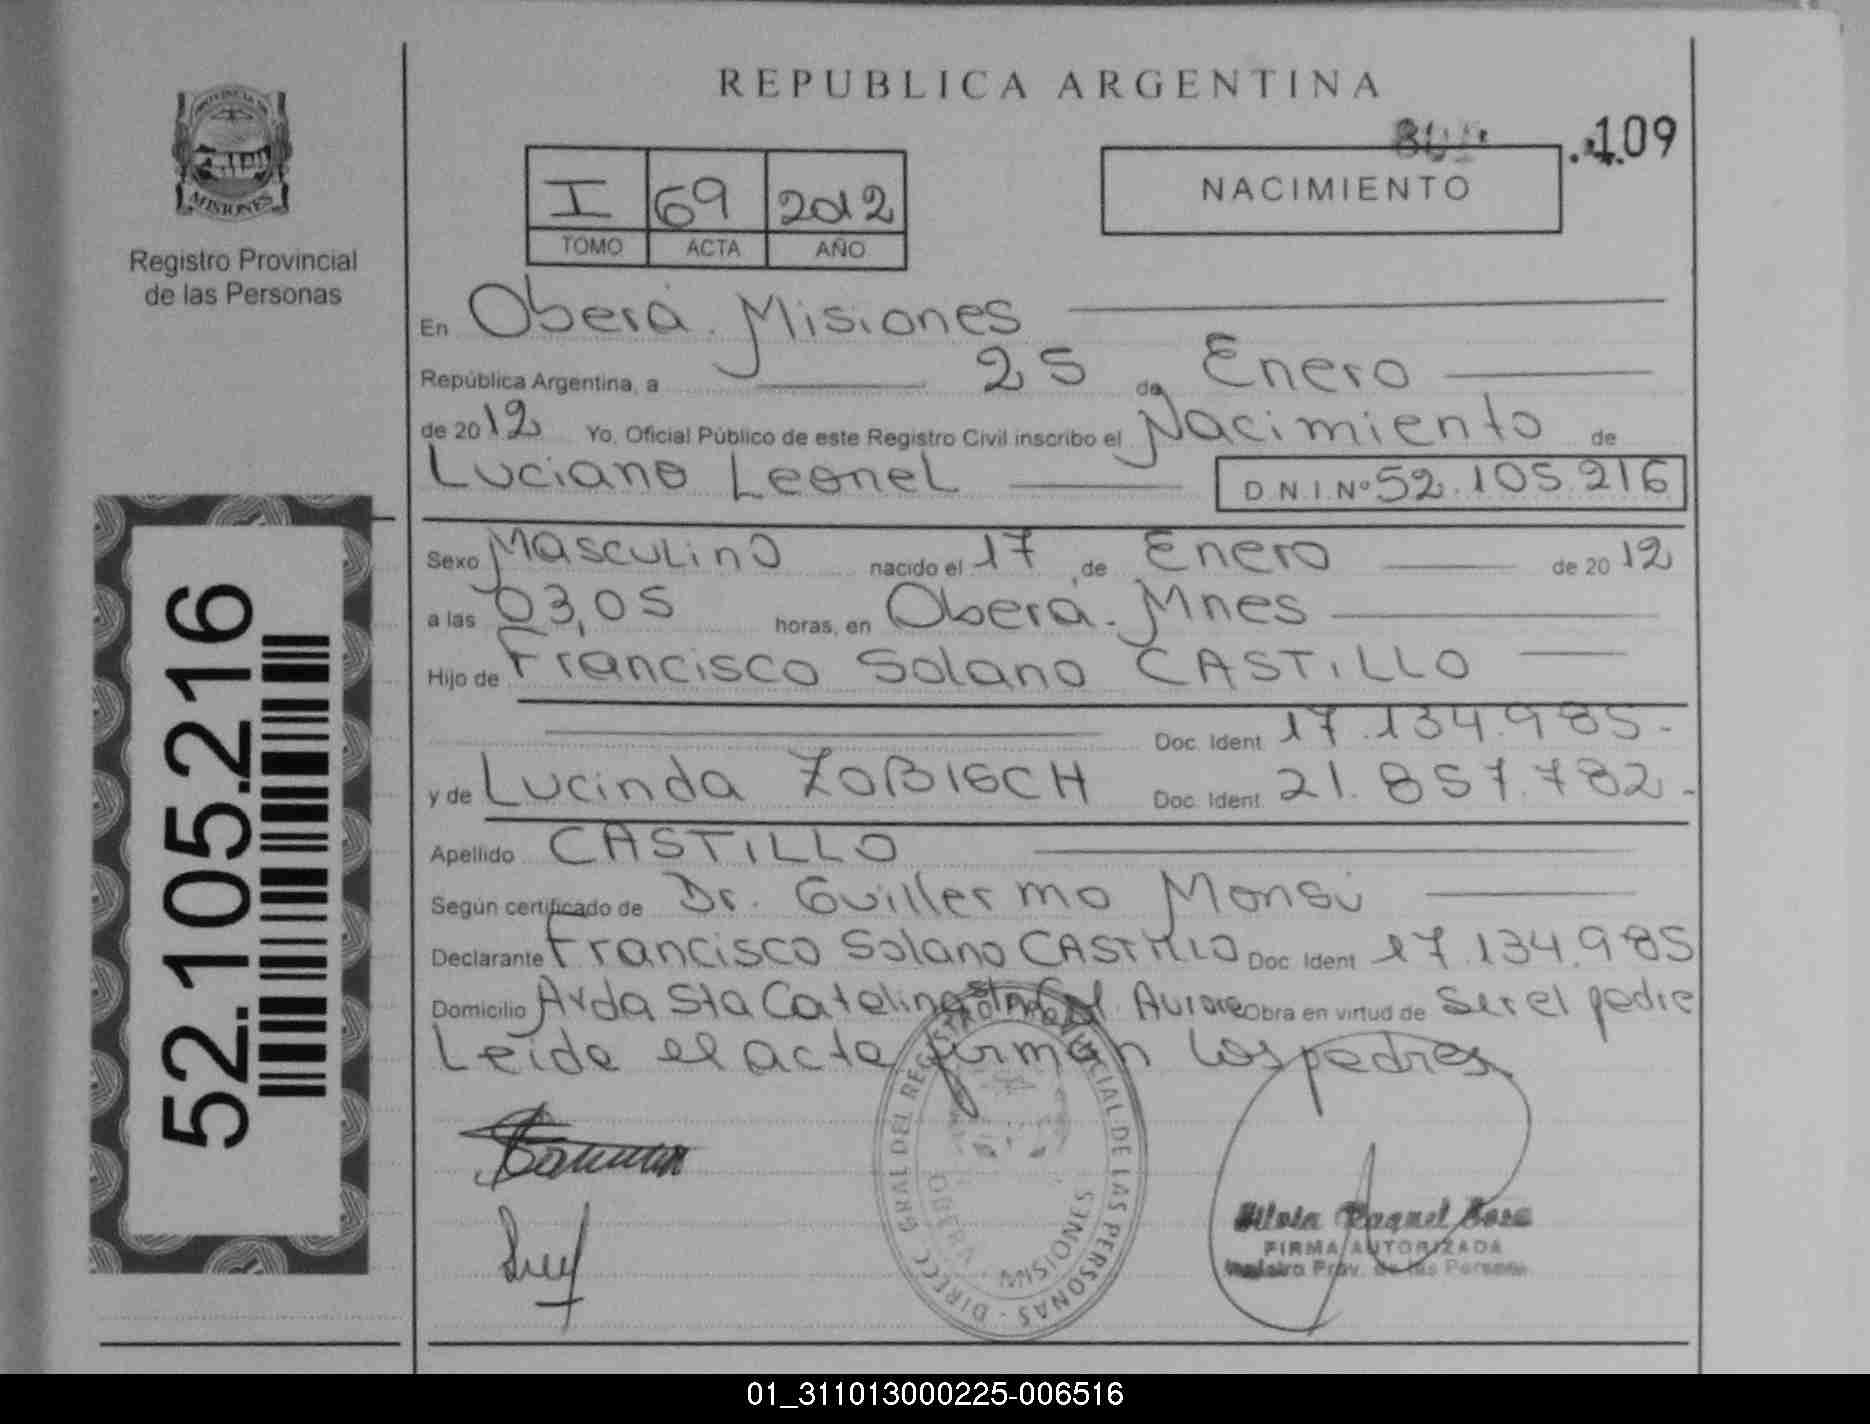 REPUBLICA ARGENTINA
109
PROVINCIA DE
MISIONES
Registro Provincial
de las Personas
I 69 2012
TOMO ACTA AÑO
NACIMIENTO
En Oberá. Misiones
República Argentina, a 25 de Enero
de 2012 Yo, Oficial Público de este Registro Civil inscribo el Nacimiento de
Luciano Leonel D.N.I.Nº 52.105.216
Sexo Masculino nacido el 17 de Enero de 2012
a las 03,05 horas, en Oberá. Mnes
Hijo de Francisco Solano CASTILLO
Doc. Ident 17.134.985.-
y de Lucinda ZOBIECH Doc. Ident 21.857.782.-
Apellido CASTILLO
Según certificado de Dr. Guillermo
Declarante Francisco Solano CASTILLO Doc. Ident 17.134.985
Domicilio Avda Sta Catalina Obra en virtud de Ser el padre
Leida el acta firman los padres
52.105.216
DIRECC. GRAL DEL REGISTRO PROVINCIAL DE LAS PERSONAS
OBERA - MISIONES
Silvia Raquel Sosa
FIRMA AUTORIZADA
Registro Prov. de las Personas
01_311013000225-006516